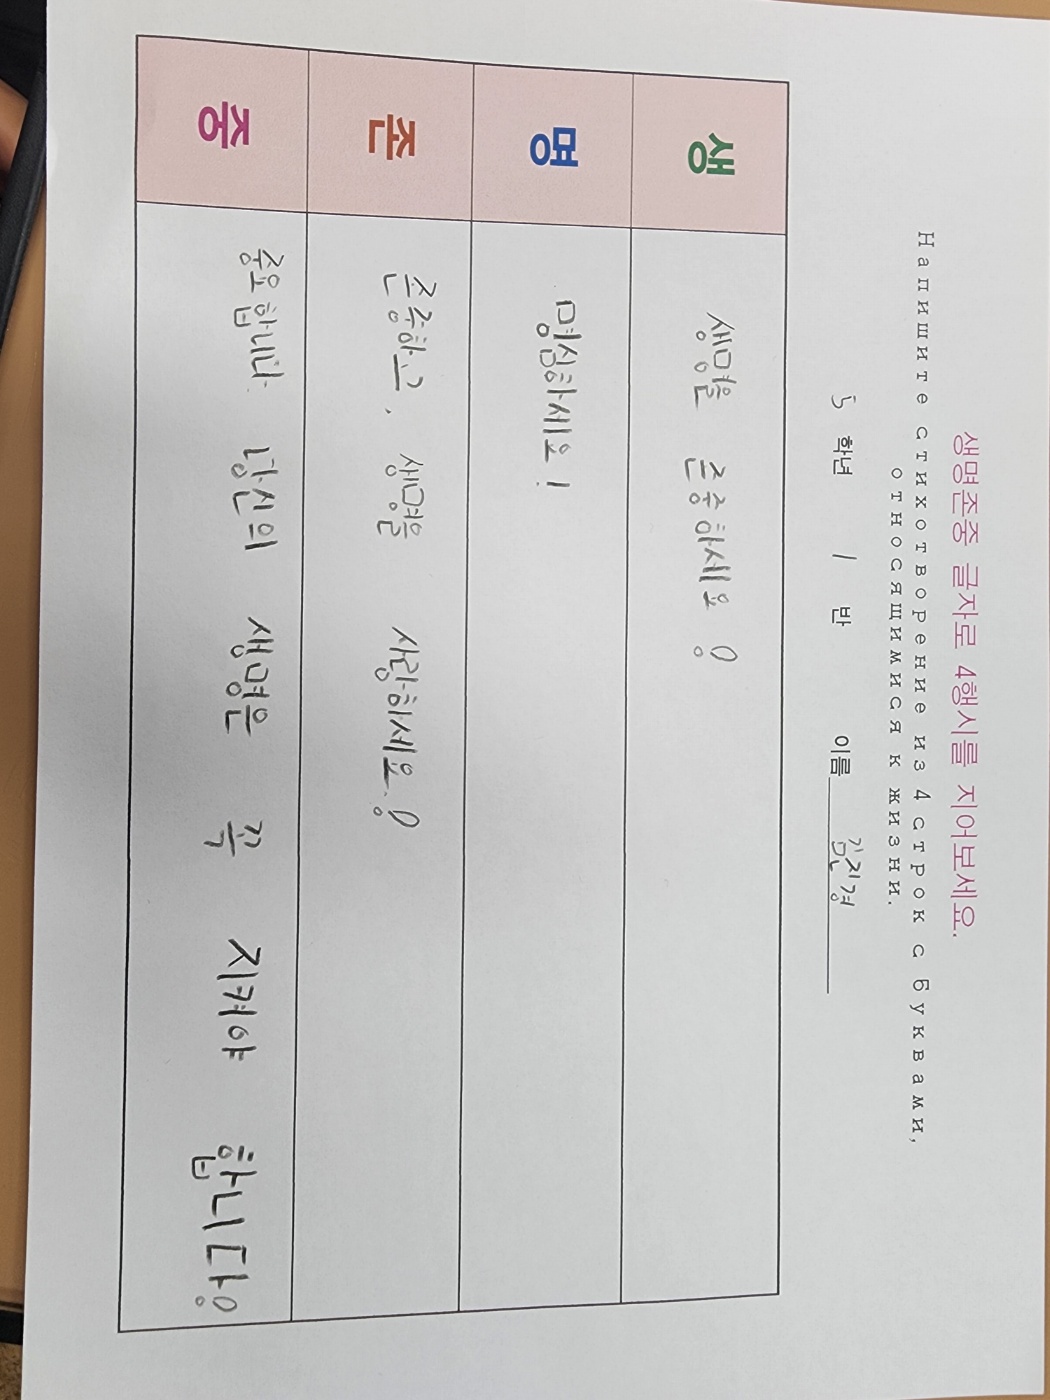 생명존중 글자로 4행시를 지어보세요.
Напишите стихотворение из 4 строк с буквами,
относящимися к жизни.
5 학년 1 반 이름 김진경
생 생명을 존중하세요!
명 명심하세요!
존 존중하고, 생명을 사랑하세요!
중 중요합니다. 당신의 생명은 꼭 지켜야 합니다!